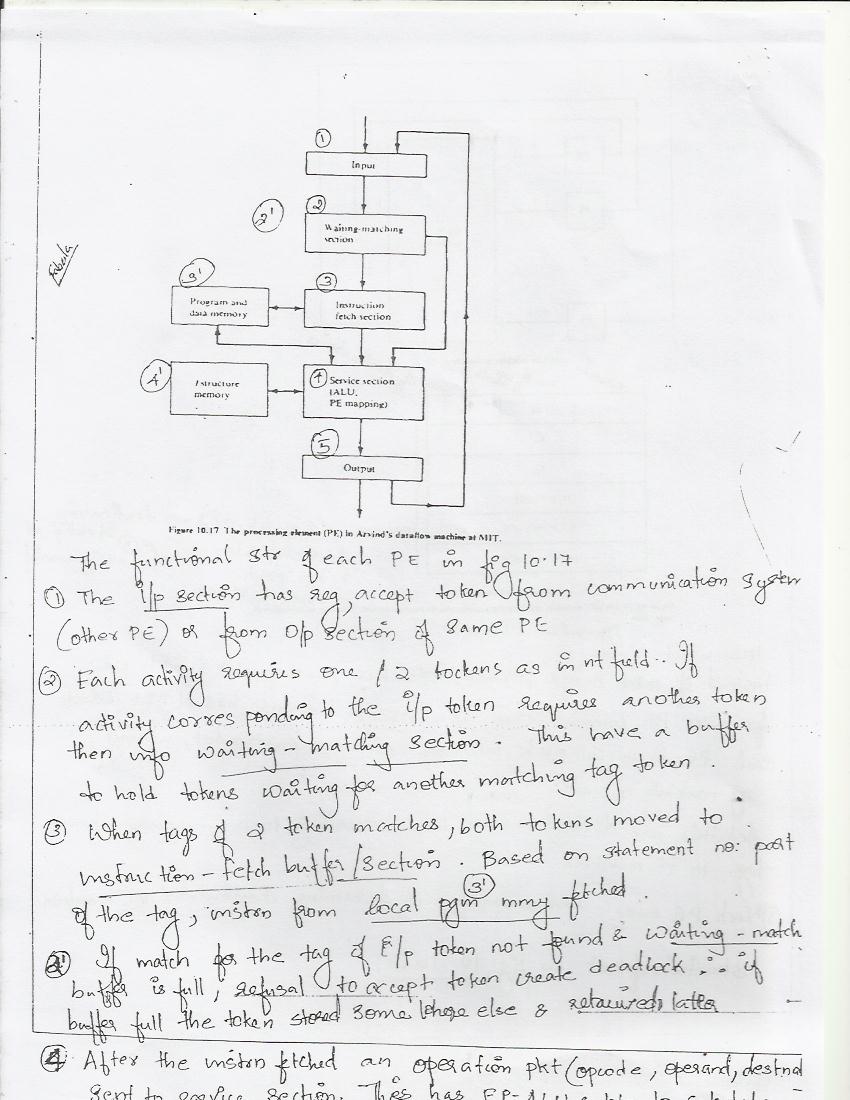 ①
Input
②'
②
Waiting-matching
section
③'
③
Program and
data memory
Instruction
fetch section
④'
I structure
memory
④ Service section
(ALU,
PE mapping)
⑤
Output
Figure 10.17 The processing element (PE) in Arvind's dataflow machine at MIT.
The functional str of each PE in fig 10.17
① The i/p section has reg, accept token from communication system
(other PE) or from o/p section of same PE
② Each activity requires one / 2 tockens as in nt field.. If
activity corresponding to the i/p token requires another token
then into waiting - matching section. This have a buffer
to hold tokens waiting for another matching tag token.
③ When tags of 2 token matches, both tokens moved to
instruction - fetch buffer/section. Based on statement no: part
③'
of the tag, instrn from local pgm mmy fetched.
②' If match for the tag of i/p token not found & waiting - match
buffer is full, refusal to accept token create deadlock ∴ if
buffer full the token stored some where else & retauired latter
④ After the instrn fetched an operation pkt (opcode, operand, destnal
sent to service section. This has